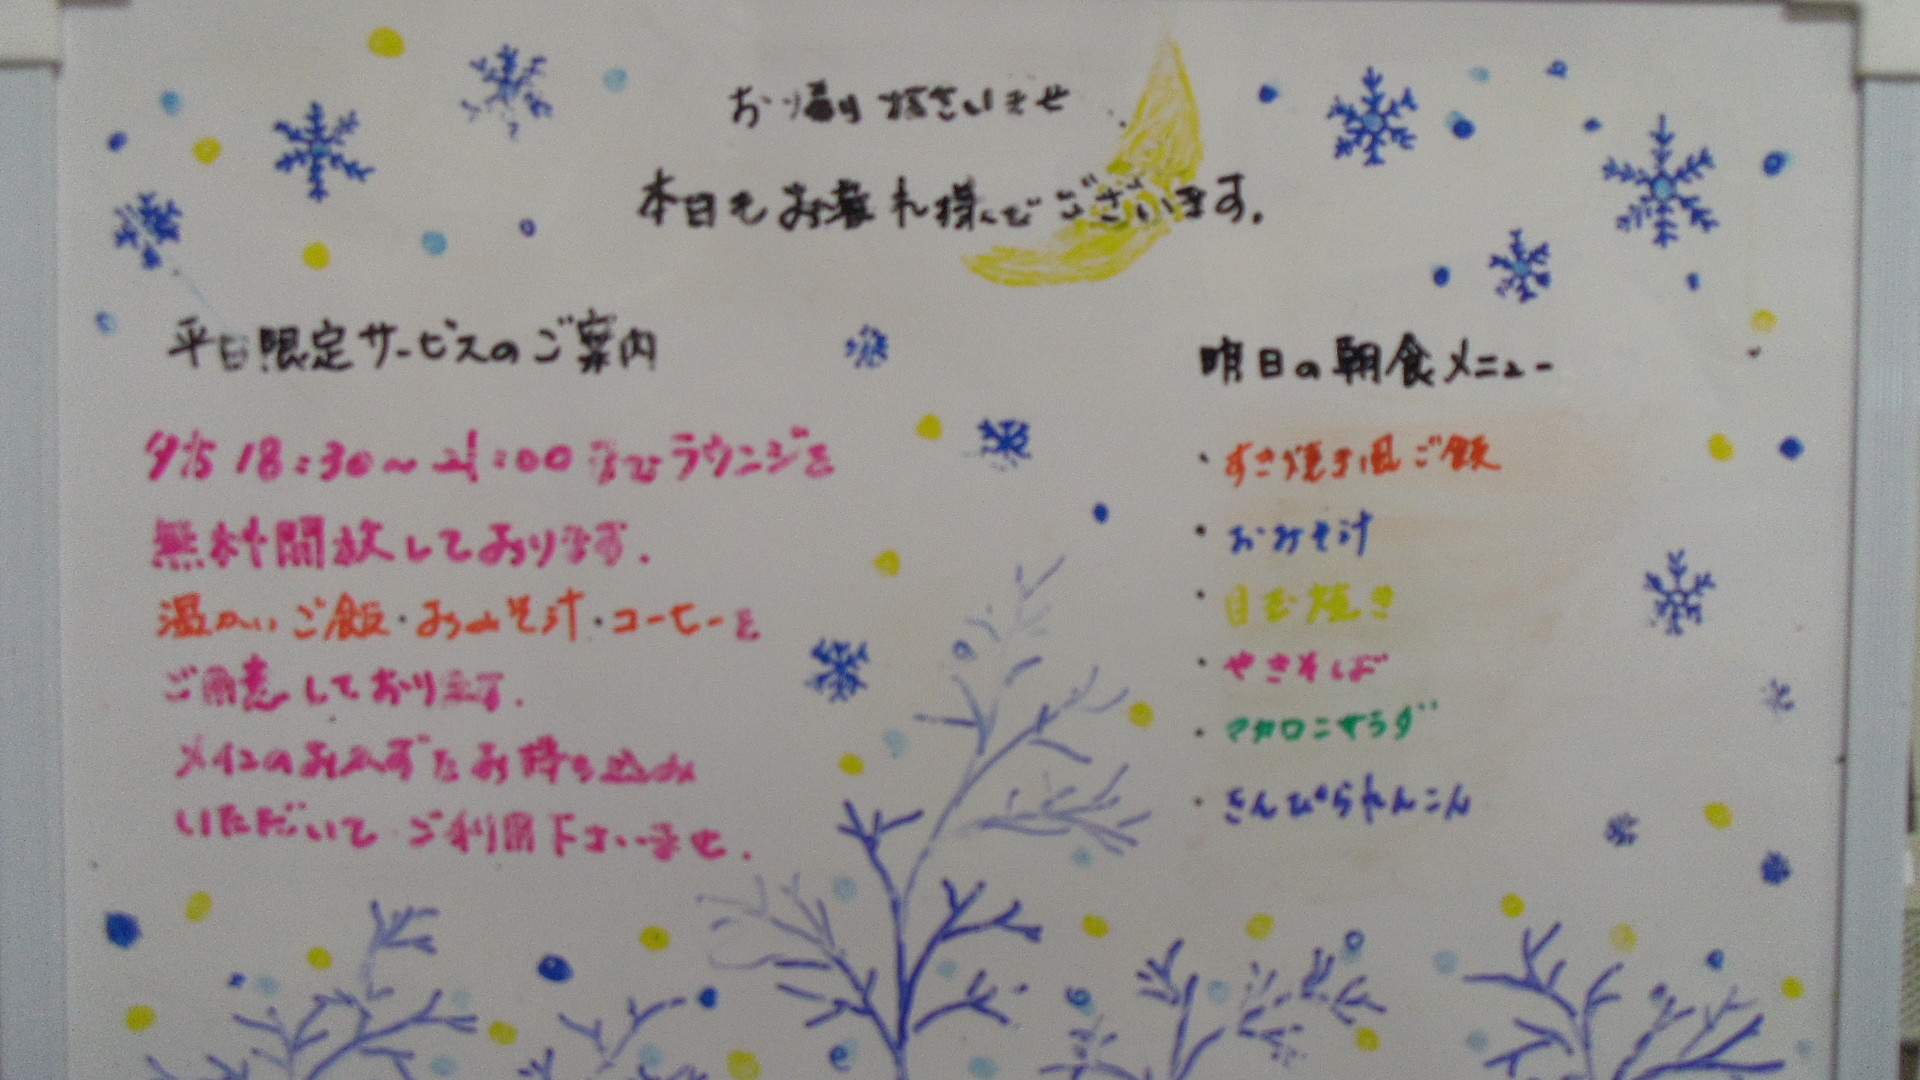 お帰り なさいませ
本日も お疲れ様でございます。
平日限定サービスのご案内
夕方 18:30～21:00 までラウンジを
無料開放しております。
温かいご飯・おみそ汁・コーヒーを
ご用意しております。
メインのおかずをお持ち込み
いただいて ご利用下さいませ。
明日の朝食メニュー
・すき焼き風ご飯
・おみそ汁
・目玉焼き
・やきそば
・マカロニサラダ
・きんぴられんこん